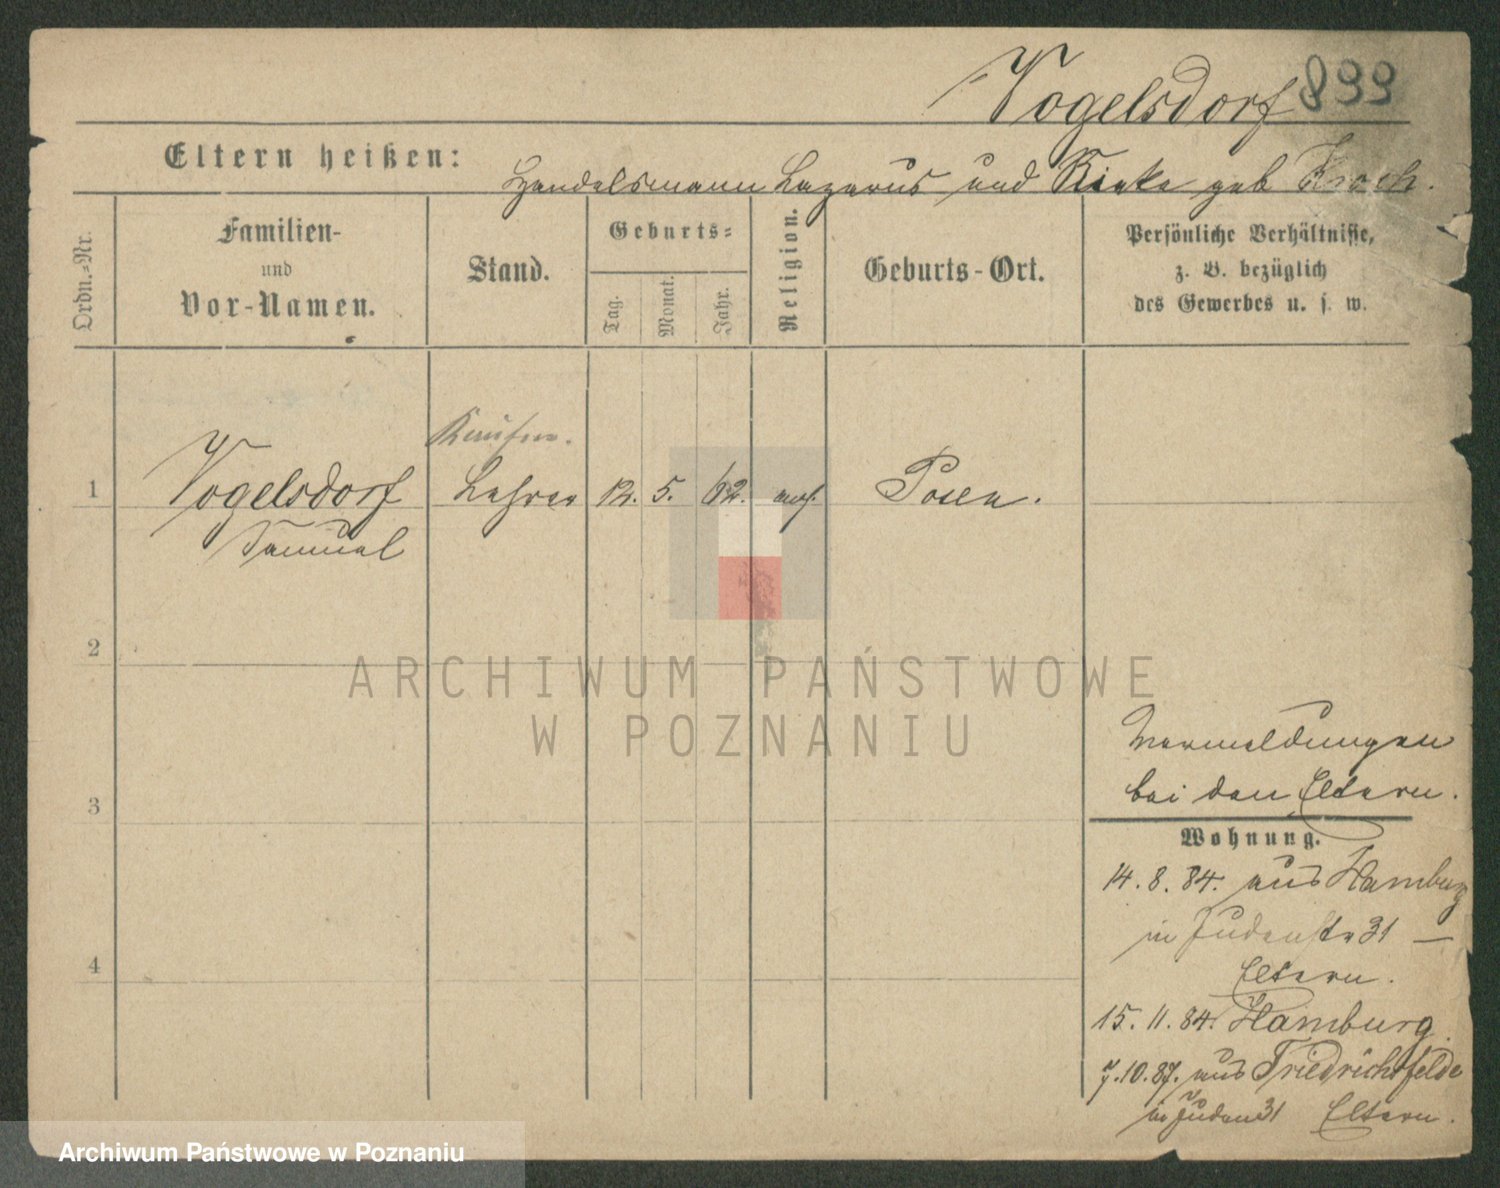 Vogelsdorf 899
Eltern heißen: Handelsmann Lazarus und Rieke geb Kroch.
Ordn.-Nr.
Familien-
und
Vor-Namen.
Stand.
Geburts-
Tag.
Monat.
Jahr.
Religion.
Geburts-Ort.
Persönliche Verhältnisse,
z. B. bezüglich
des Gewerbes u. s. w.
Kaufm.
1 Vogelsdorf Lehrer 12. 5. 62. mos. Posen.
Samuel
2
3
4
Vermeldungen
bei den Eltern.
Wohnung.
14. 8. 84. aus Hamburg
in Judenstr 31 —
Eltern.
15. 11. 84. Hamburg.
7. 10. 87. aus Friedrichsfelde
in Juden 31 Eltern.
ARCHIWUM PAŃSTWOWE
W POZNANIU
Archiwum Państwowe w Poznaniu